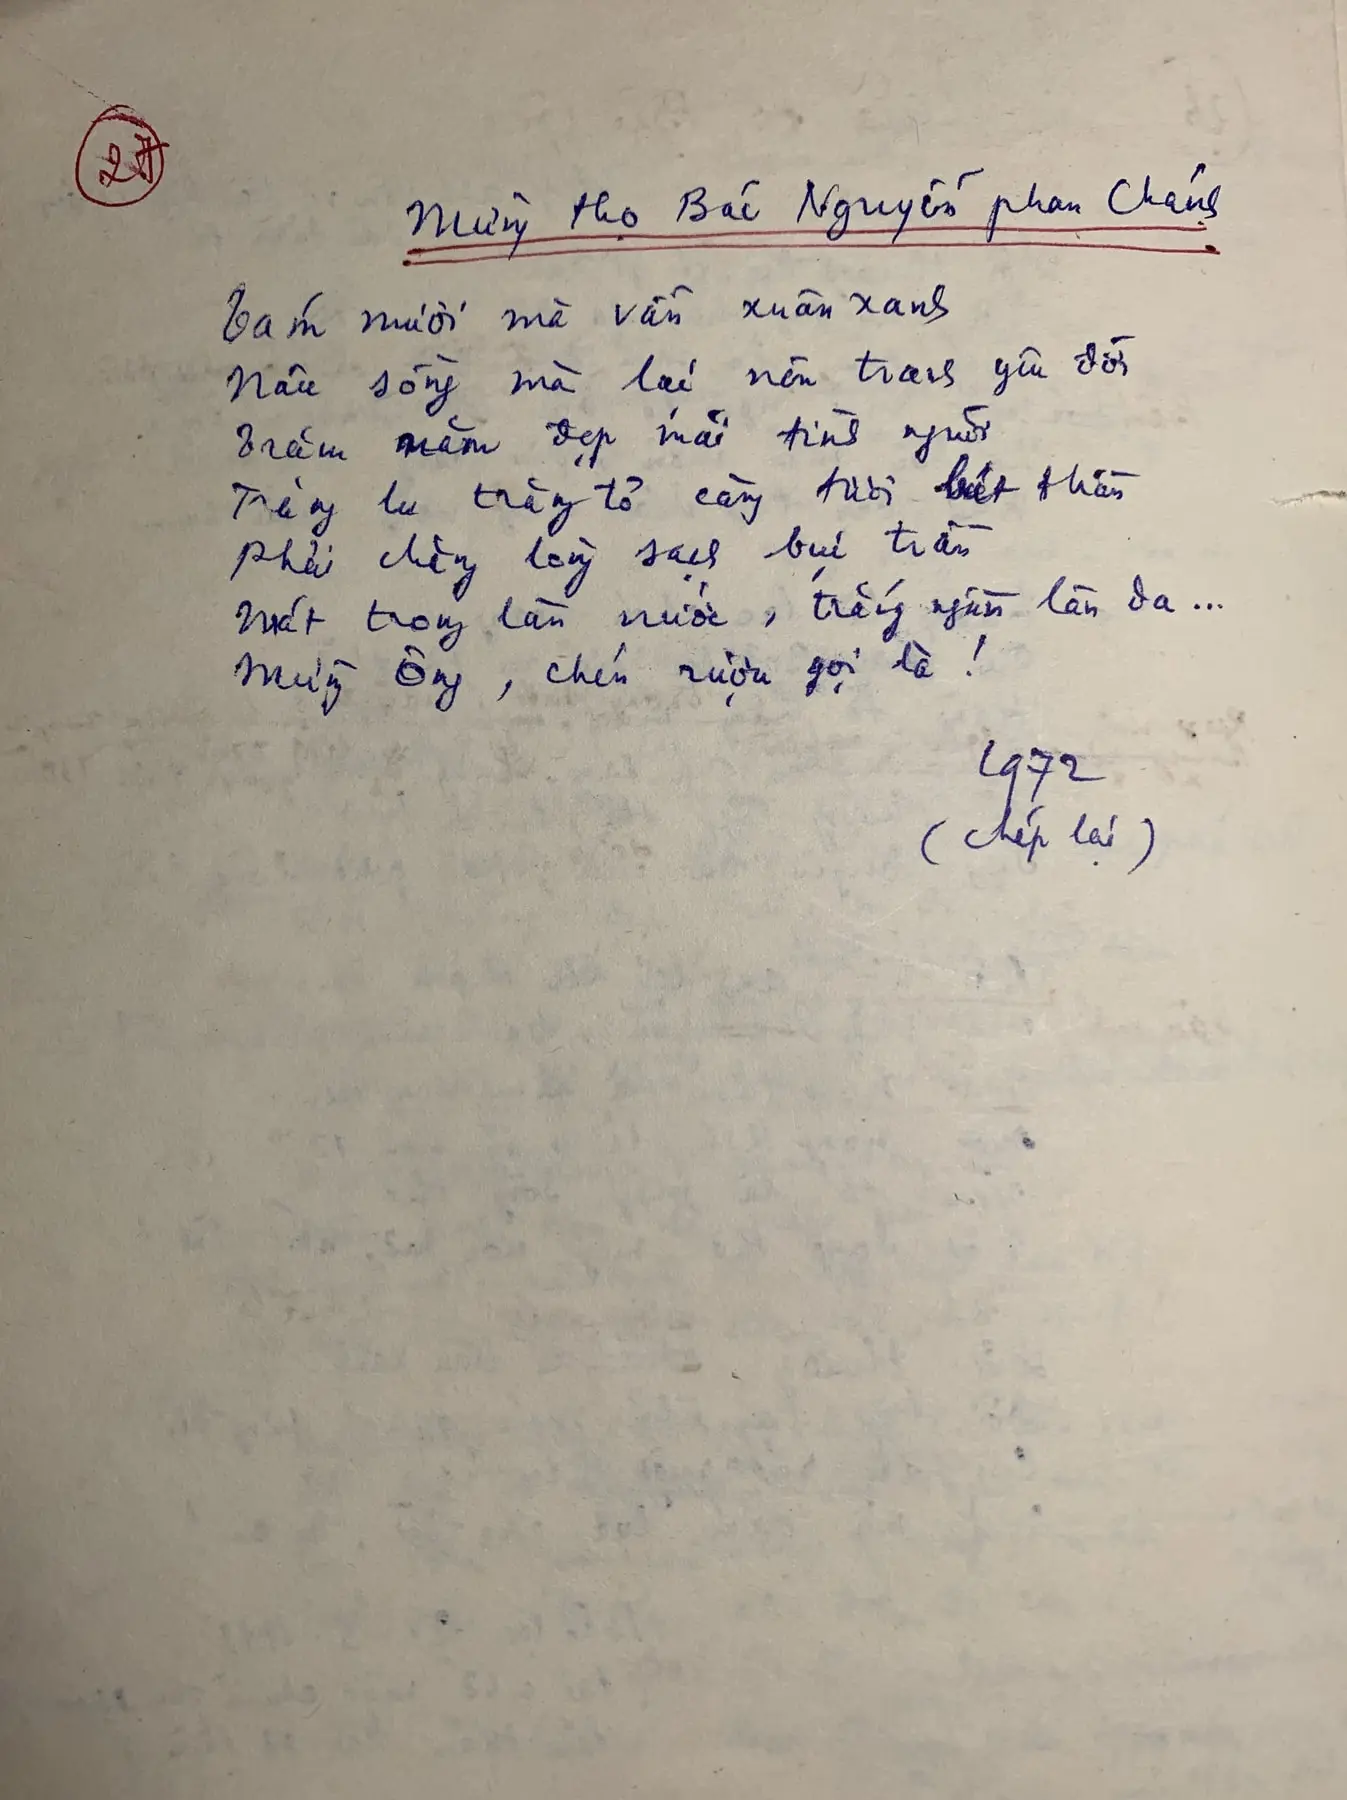 27
Mừng thọ Bác Nguyễn phan Chánh
Tám mươi mà vẫn xuân xanh
Nâu sồng mà lại nên tranh yêu đời
Trăm năm đẹp mãi tình người
Trăng lu trăng tỏ càng tươi bút thần
Phải chăng lòng sạch bụi trần
Mát trong làn nước, trắng ngần làn da...
Mừng Ông, chén rượu gọi là!
1972
(chép lại)